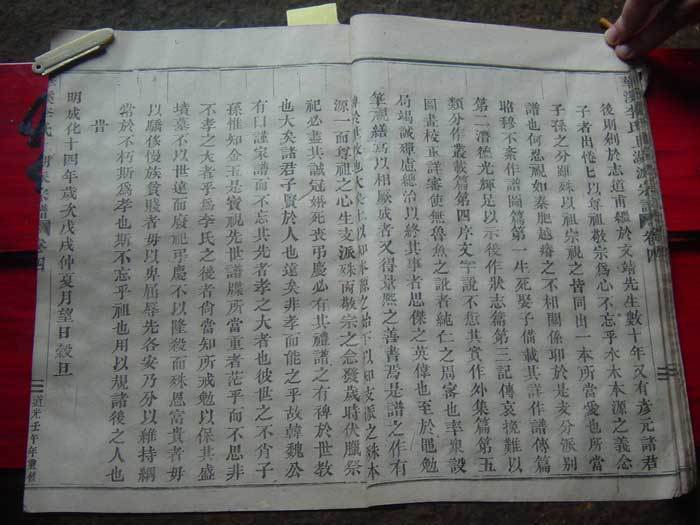 後則剏於志道甫繼於文靖先生數十年又有彥元諸君
子者出惓匕以尊祖敬宗爲心不忘乎水木本源之義念
子孫之分雖殊以祖宗視之皆同出一本所當愛也所當
譜也何忍視如秦肥越瘠之不相關係耶於是支分派別
昭穆不紊作譜圖篇第一生死娶子備載其詳作譜傳篇
第二潛德光輝足以示後作狀志篇第三記傳哀挽難以
類分作叢載篇第四序文字說不愆其實作外集篇第五
圖畫校正詳審使無魯魚之訛者純仁之周密也率衆設
局竭誠殫慮總治以終其事者思傑之英偉也至於黽勉
筆硯繕寫以相厥成者又得景熙之善書焉是譜之作有
源一而尊祖之心生支派殊而敬宗之念發歲時伏臘祭
祀必盡其誠冠婚死喪弔慶必有其禮譜之有裨於世教
也大矣諸君子賢於人也遠矣非孝而能之乎故韓魏公
有曰謹家譜而不忘其先者孝之大者也彼世之不肖子
孫惟知金玉是寶視先世譜牒所當重者茫乎而不思非
不孝之大者乎爲李氏之後者倘當知所戒勉以保其盛
墳墓不以世遠而廢祀弔慶不以隆殺而殊恩富貴者毋
以驕侈慢族貧賤者毋以卑屈辱先各安乃分以維持綱
常於不朽斯爲孝也斯不忘乎祖也用以規諸後之人也
昔
明成化十四年歲次戊戌仲夏月望日穀旦
道光壬午年重修
卷四